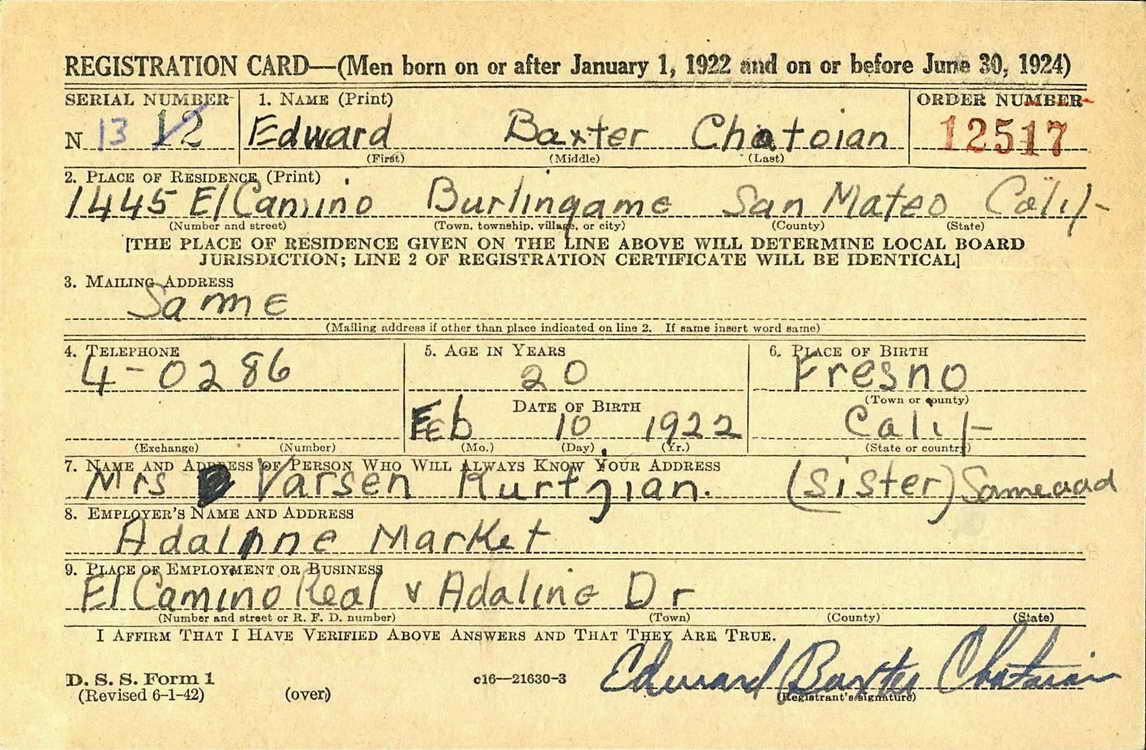 REGISTRATION CARD—(Men born on or after January 1, 1922 and on or before June 30, 1924)
SERIAL NUMBER 1. NAME (Print) ORDER NUMBER
N 13 12 Edward Baxter Chatoian 12517
(First) (Middle) (Last)
2. PLACE OF RESIDENCE (Print)
1445 El Camino Burlingame San Mateo Calif
(Number and street) (Town, township, village, or city) (County) (State)
[THE PLACE OF RESIDENCE GIVEN ON THE LINE ABOVE WILL DETERMINE LOCAL BOARD
JURISDICTION; LINE 2 OF REGISTRATION CERTIFICATE WILL BE IDENTICAL]
3. MAILING ADDRESS
Same
(Mailing address if other than place indicated on line 2. If same insert word same)
4. TELEPHONE 5. AGE IN YEARS 6. PLACE OF BIRTH
4-0286 20 Fresno
DATE OF BIRTH (Town or county)
Feb 10 1922 Calif
(Exchange) (Number) (Mo.) (Day) (Yr.) (State or country)
7. NAME AND ADDRESS OF PERSON WHO WILL ALWAYS KNOW YOUR ADDRESS
Mrs Varsen Kurtjian. (Sister) Same add
8. EMPLOYER'S NAME AND ADDRESS
Adaline Market
9. PLACE OF EMPLOYMENT OR BUSINESS
El Camino Real & Adaline Dr
(Number and street or R. F. D. number) (Town) (County) (State)
I AFFIRM THAT I HAVE VERIFIED ABOVE ANSWERS AND THAT THEY ARE TRUE.
D. S. S. Form 1
(Revised 6-1-42) (over) c16—21630-3 Edward Baxter Chatoian
(Registrant's signature)